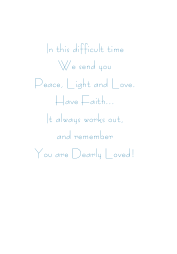 In this difficult time
We send you
Peace, Light and Love.
Have Faith...
It always works out,
and remember
You are Dearly Loved!